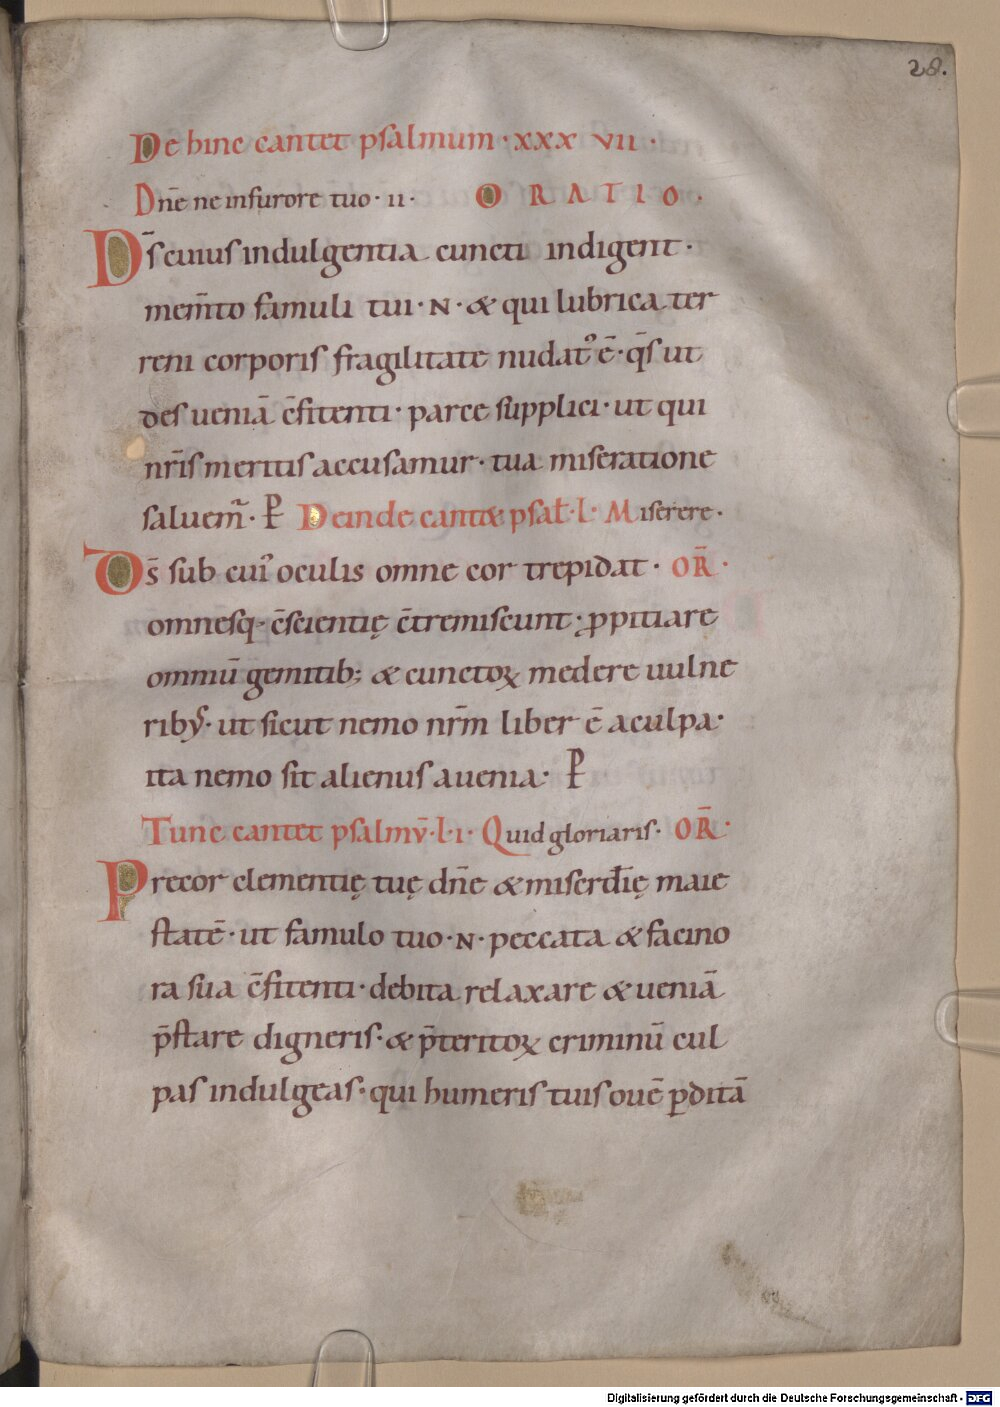 28.
De hinc cantet psalmum · xxx vii ·
Dn̄e ne infurore tuo · ii · O R A T I O ·
D̄s cuius indulgentia cuncti indigent ·
mem̄to famuli tui · N · & qui lubrica ter
reni corporis fragilitate nudat᾿ ē · q̄s ut
des ueniā c̄fitenti · parce supplici · ut qui
nr̄is meritis accusamur · tua miseratione
saluem̄ · P Deinde cant& psal̄ · L · Miserere ·
D̄s sub cui᾿ oculis omne cor trepidat · OR̄ ·
omnesq· c̄scientię c̄tremiscunt · ꝓpitiare
omniū gemitib; & cunctoꝝ medere uulne
ribꝰ · ut sicut nemo nr̄m liber ē aculpa ·
ita nemo sit alienus auenia · P
Tunc cantet psalmū · L · i · Quid gloriaris · OR̄ ·
Precor clementię tuę dn̄e & miserd̄ię maie
statē · ut famulo tuo · N · peccata & facino
ra sua c̄fitenti · debita relaxare & ueniā
p̄stare digneris · & p̄teritoꝝ criminū cul
pas indulgeas · qui humeris tuis ouē ꝑditā
Digitalisierung gefördert durch die Deutsche Forschungsgemeinschaft - DFG